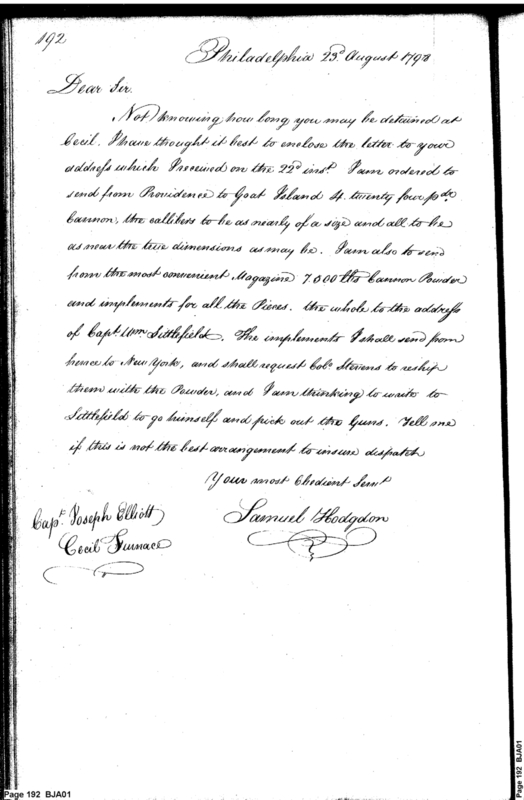 192
Philadelphia 23d. August 1798
Dear Sir.
Not knowing how long you may be detained at
Cecil. I have thought it best to enclose the letter to your
address which I received on the 22d inst. I am ordered to
send from Providence to Goat Island 4. twenty four pdr.
Cannon, the callibers to be as nearly of a size and all to be
as near the true dimensions as may be. I am also to send
from the most convenient Magazine 7.000 lbs Cannon Powder
and implements for all the Pieces. the whole to the address
of Capt. Wm Littlefield. The implements I shall send from
hence to New York, and shall request Colo. Stevens to reship
them with the Powder, and I am thinking to write to
Littlefield to go himself and pick out the Guns. Tell me
if this is not the best arrangement to insure dispatch
Your most Obedient Servt
Samuel Hodgdon
Capt. Joseph Elliott
Cecil Furnace
Page 192 BJA01
Page 192 BJA01